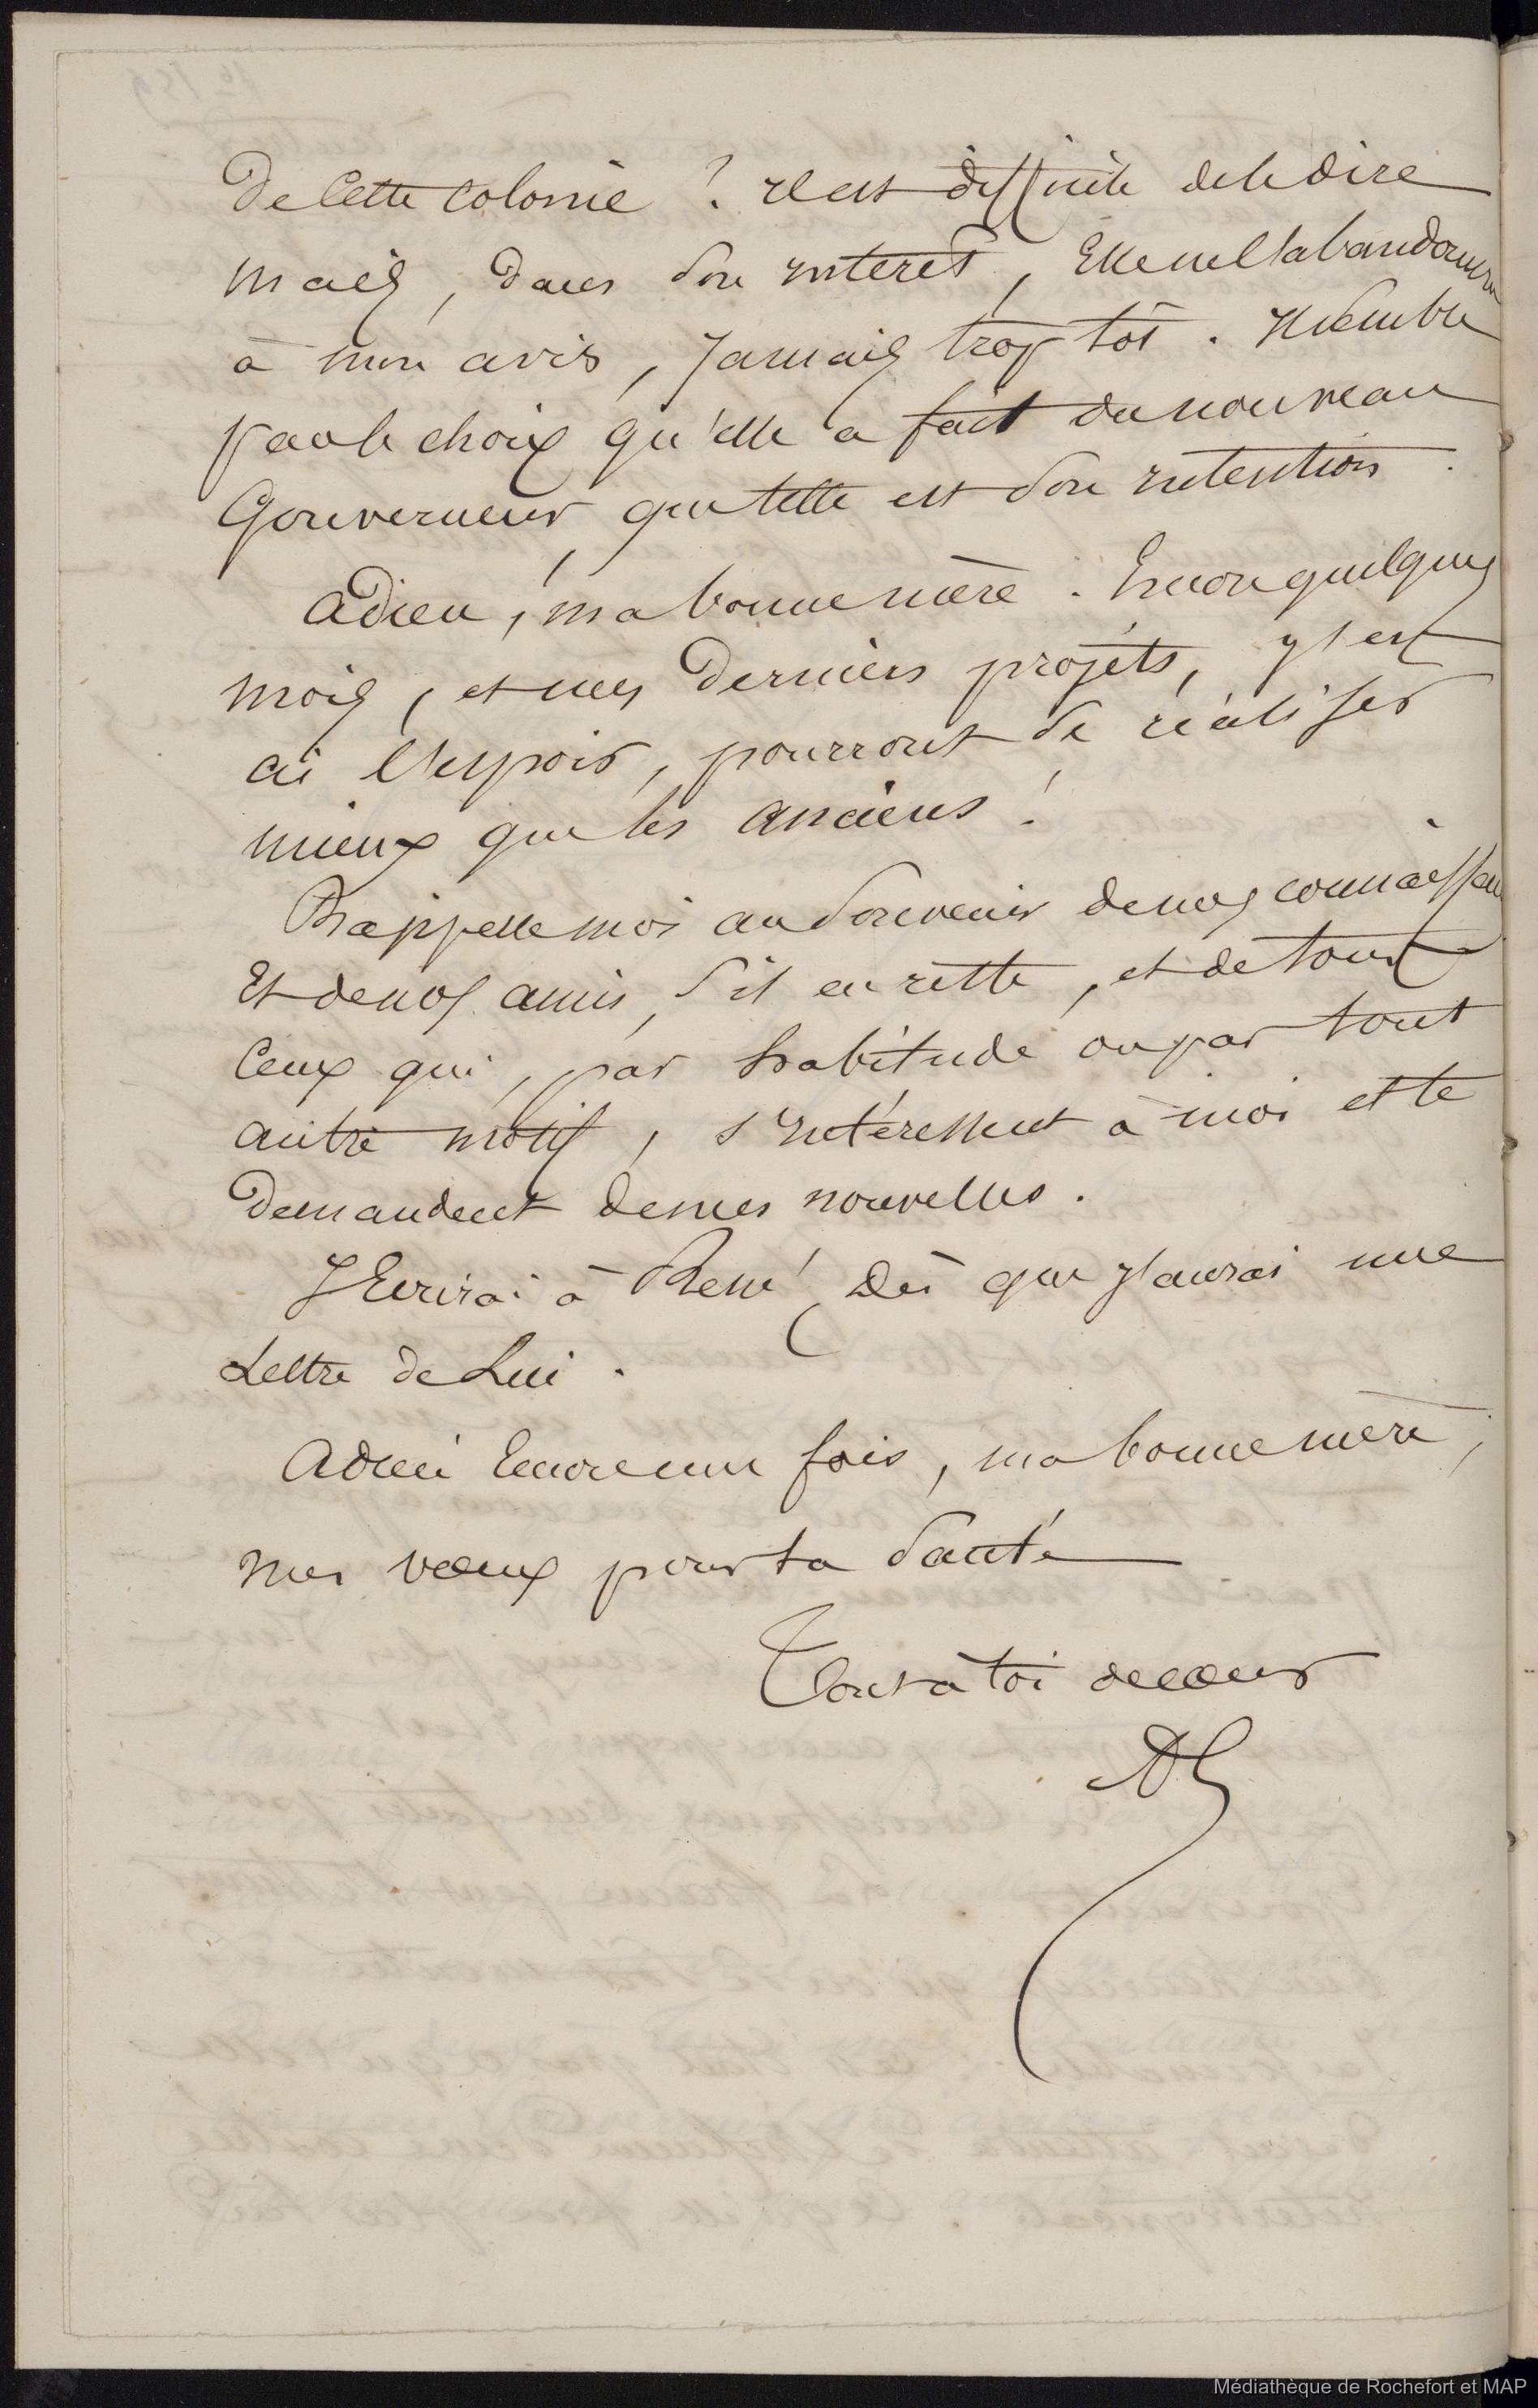 de cette colonie ? il est difficile de le dire
mais, dans son interet, Elle ne l'abandonnera
à mon avis, jamais trop tôt. Il semble
par le choix qu'elle a fait du nouveau
Gouverneur, que telle est son intention.
Adieu, ma bonne mère. Encore quelques
mois, et mes derniers projets, j'en
ai l'espoir, pourront se réaliser
mieux que les anciens !
Rappelle moi au souvenir de nos connaissan
Et de nos amis, s'il en reste, et de tous
Ceux qui, par habitude ou par tout
autre motif, s'intéressent à moi et te
Demandent de mes nouvelles.
J'Ecrirai à René, Dès que j'aurai une
Lettre de Lui.
Adieu Encore une fois, ma bonne mère,
mes vœux pour ta santé
Tout à toi de cœur
Médiathèque de Rochefort et MAP